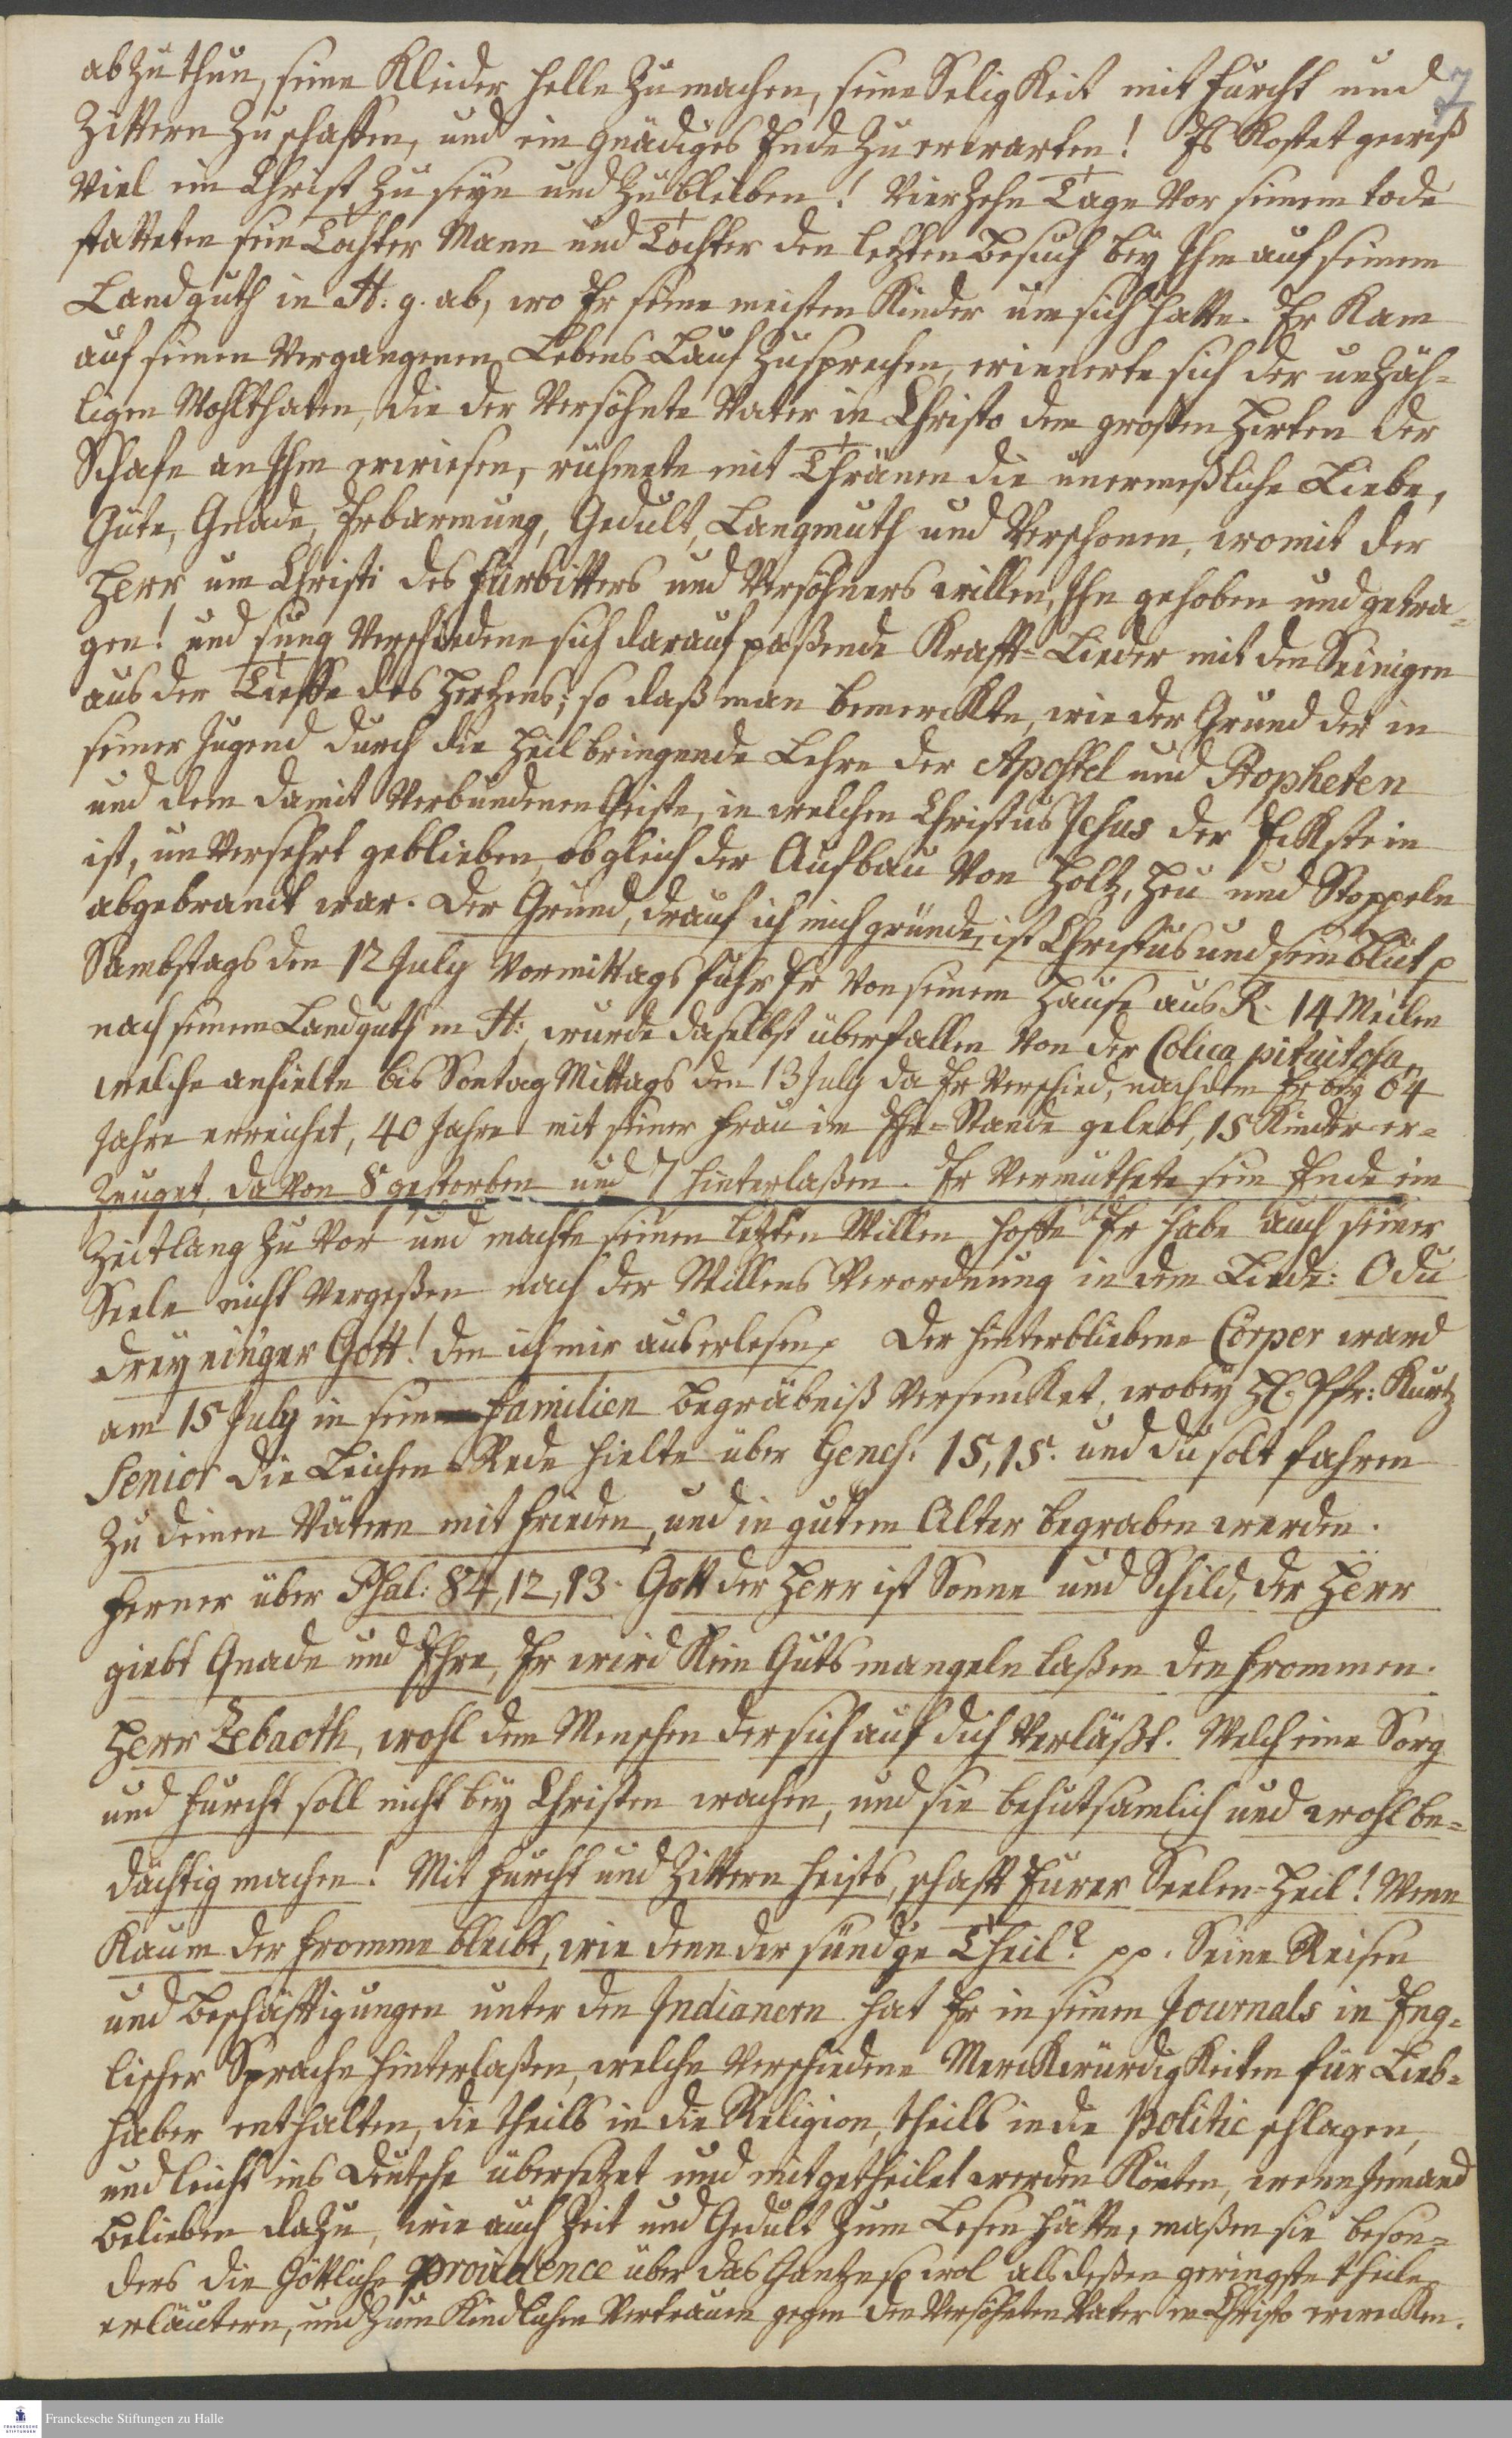 7
abzuthun, seine Kleider helle zu machen, seine Seligkeit mit Furcht und
Zittern zu schaffen, und ein gnädiges Ende zu erwarten! Es kostet gewiß
viel ein Christ zu seyn und zu bleiben! Vierzehn Tage vor seinem tode
statteten sein Tochter Mann und Tochter den letzten besuch bey Ihm auf seinem
Landguth in H: g. ab, wo Er seine meisten Kinder um sich hatte. Er kam
auf seinen vergangenen Lebens Lauf zu sprechen, erinnerte sich der unzäh-
ligen Wohlthaten, die der Versöhnte Vater in Christo dem grossen Hirten der
Schafe an Ihm erwiesen, rühmete mit Thränen die unermeßliche Liebe,
Güte, Gnade, Erbarmung, Gedult, Langmuth und Verschonen, womit der
Herr um Christi des Fürbitters und Versöhners willen, Ihn gehoben und getra-
gen! und sung verschiedene sich darauf paßende Krafft-Lieder mit den Seinigen
aus der Tieffe des Hertzens; so daß man bemerckte, wie der Grund der in
seiner Jugend durch die Heilbringende Lehre der Apostel und Propheten
und dem damit verbundenen Geiste, in welchen Christus Jesus der Eckstein
ist, unversehrt geblieben, obgleich der Aufbau von Holtz, Heu und Stoppeln
abgebrandt war. Der Grund, drauf ich mich gründe, ist Christus und sein blut p
Sambstags den 12 July Vormittags fuhr Er von seinem Hause aus R. 14 Meilen
nach seinem Landguth in H:, wurde daselbst überfallen von der Colica pituitosa,
welche anhielte bis Sontag Mittags den 13 July da Er verschied, nachdem Er bey 64
Jahre erreichet, 40 Jahre mit seiner Frau im Ehe-Stande gelebt, 15 Kinder er-
zeuget, davon 8 gestorben und 7 hinterlaßen. Er vermuthete sein Ende ein
Zeitlang zuvor und machte seinen letzten Willen, hoffe Er habe auch seiner
Seele nicht vergeßen nach der Willens Verordnung in dem Liede: O du
dreyeiniger Gott! den ich mir auserlesen p Der hinterbliebene Cörper ward
am 15 July in sein Familien begräbniß versencket, wobey H. Pfr: Kurtz
Senior die Leichen-Rede hielte über Genes. 15,15. und du solt fahren
zu deinen Vätern mit Frieden, und in gutem Alter begraben werden.
Ferner über Psal: 84,12,13. Gott der Herr ist Sonne und Schild, der Herr
giebt Gnade und Ehre, Er wird kein Guts mangeln laßen den Frommen.
Herr Zebaoth, wohl dem Menschen der sich auf dich verläßt. Welch eine Sorg
und Furcht soll nicht bey Christen wachen, und sie behutsamlich und wohlbe-
dächtig machen! Mit Furcht und Zittern heists, schafft Eurer Seelen-Heil! Wenn
kaum der Fromme bleibt, wie denn der sündge Theil? pp. Seine Reisen
und beschäfftigungen unter den Indianern hat Er in seinen Journals in Eng-
lischer Sprache hinterlaßen, welche verschiedene Merckwürdigkeiten für Lieb-
haber enthalten, die theils in die Religion, theils in die Politic schlagen,
und leicht ins Deutsche übersetzet und mitgetheilet werden könten, wenn Jemand
belieben dazu, wie auch Zeit und Gedult zum Lesen hätte, maßen sie beson-
ders die Göttliche Providence über das Gantze so wol als deßen geringste theile
erläutern, und zum Kindlichen Vertrauen gegen den Versöhnten Vater in Christo erwecken.
FRANCKESCHE STIFTUNGEN
Franckesche Stiftungen zu Halle